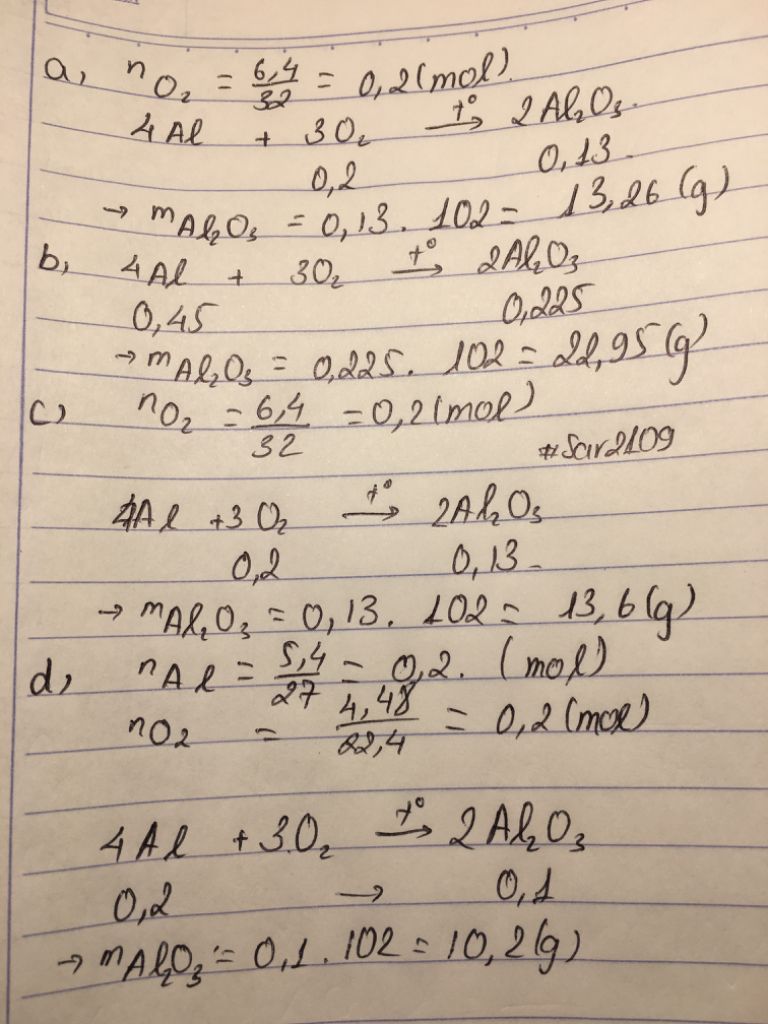 a, nO₂ = 6,4/32 = 0,2 (mol).
4Al + 3O₂ —t°→ 2Al₂O₃.
0,2 0,13.
→ mAl₂O₃ = 0,13. 102 = 13,26 (g)
b, 4Al + 3O₂ —t°→ 2Al₂O₃
0,45 0,225
→ mAl₂O₃ = 0,225. 102 = 22,95 (g)
c) nO₂ = 6,4/32 = 0,2 (mol)
#Sar2109
4Al + 3O₂ —t°→ 2Al₂O₃
0,2 0,13.
→ mAl₂O₃ = 0,13. 102 = 13,6 (g)
d, nAl = 5,4/27 = 0,2. (mol)
nO₂ = 4,48/22,4 = 0,2 (mol)
4Al + 3O₂ —t°→ 2Al₂O₃
0,2 → 0,1
→ mAl₂O₃ = 0,1. 102 = 10,2 (g)